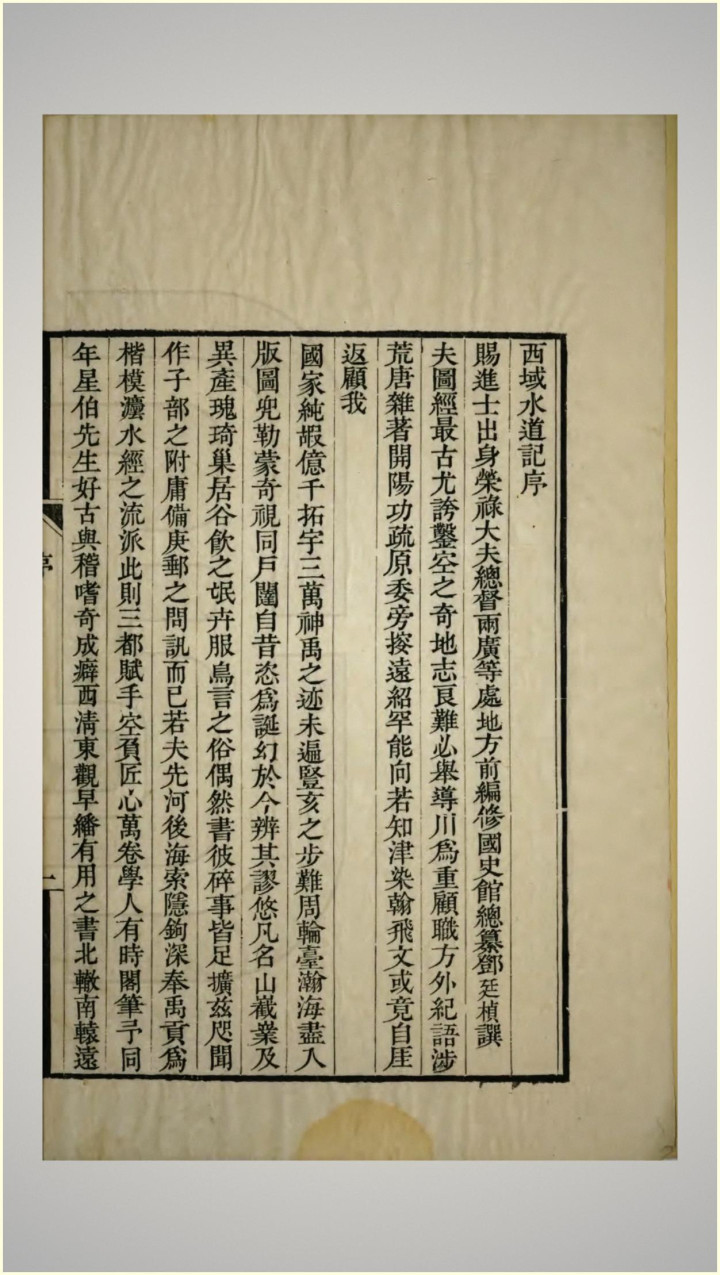 西域水道記序
賜進士出身榮祿大夫總督兩廣等處地方前編修國史館總纂鄧廷楨譔
夫圖經最古尤誇鑿空之奇地志良難必舉導川爲重顧職方外紀語涉
荒唐雜著開陽功疏原委旁搜遠紹罕能向若知津染翰飛文或竟自厓
返顧我
國家純嘏億千拓宇三萬神禹之迹未遍豎亥之步難周輪臺瀚海盡入
版圖兜勒蒙奇視同戶闥自昔恣爲誕幻於今辨其謬悠凡名山嶻業及
異產瑰琦巢居谷飮之氓卉服鳥言之俗偶然書彼碎事皆足擴茲咫聞
作子部之附庸備庚郵之問訊而已若夫先河後海索隱鉤深奉禹貢爲
楷模灋水經之流派此則三都賦手空負匠心萬卷學人有時閣筆予同
年星伯先生好古與稽嗜奇成癖西清東觀早繙有用之書北轍南轅遠
序
一